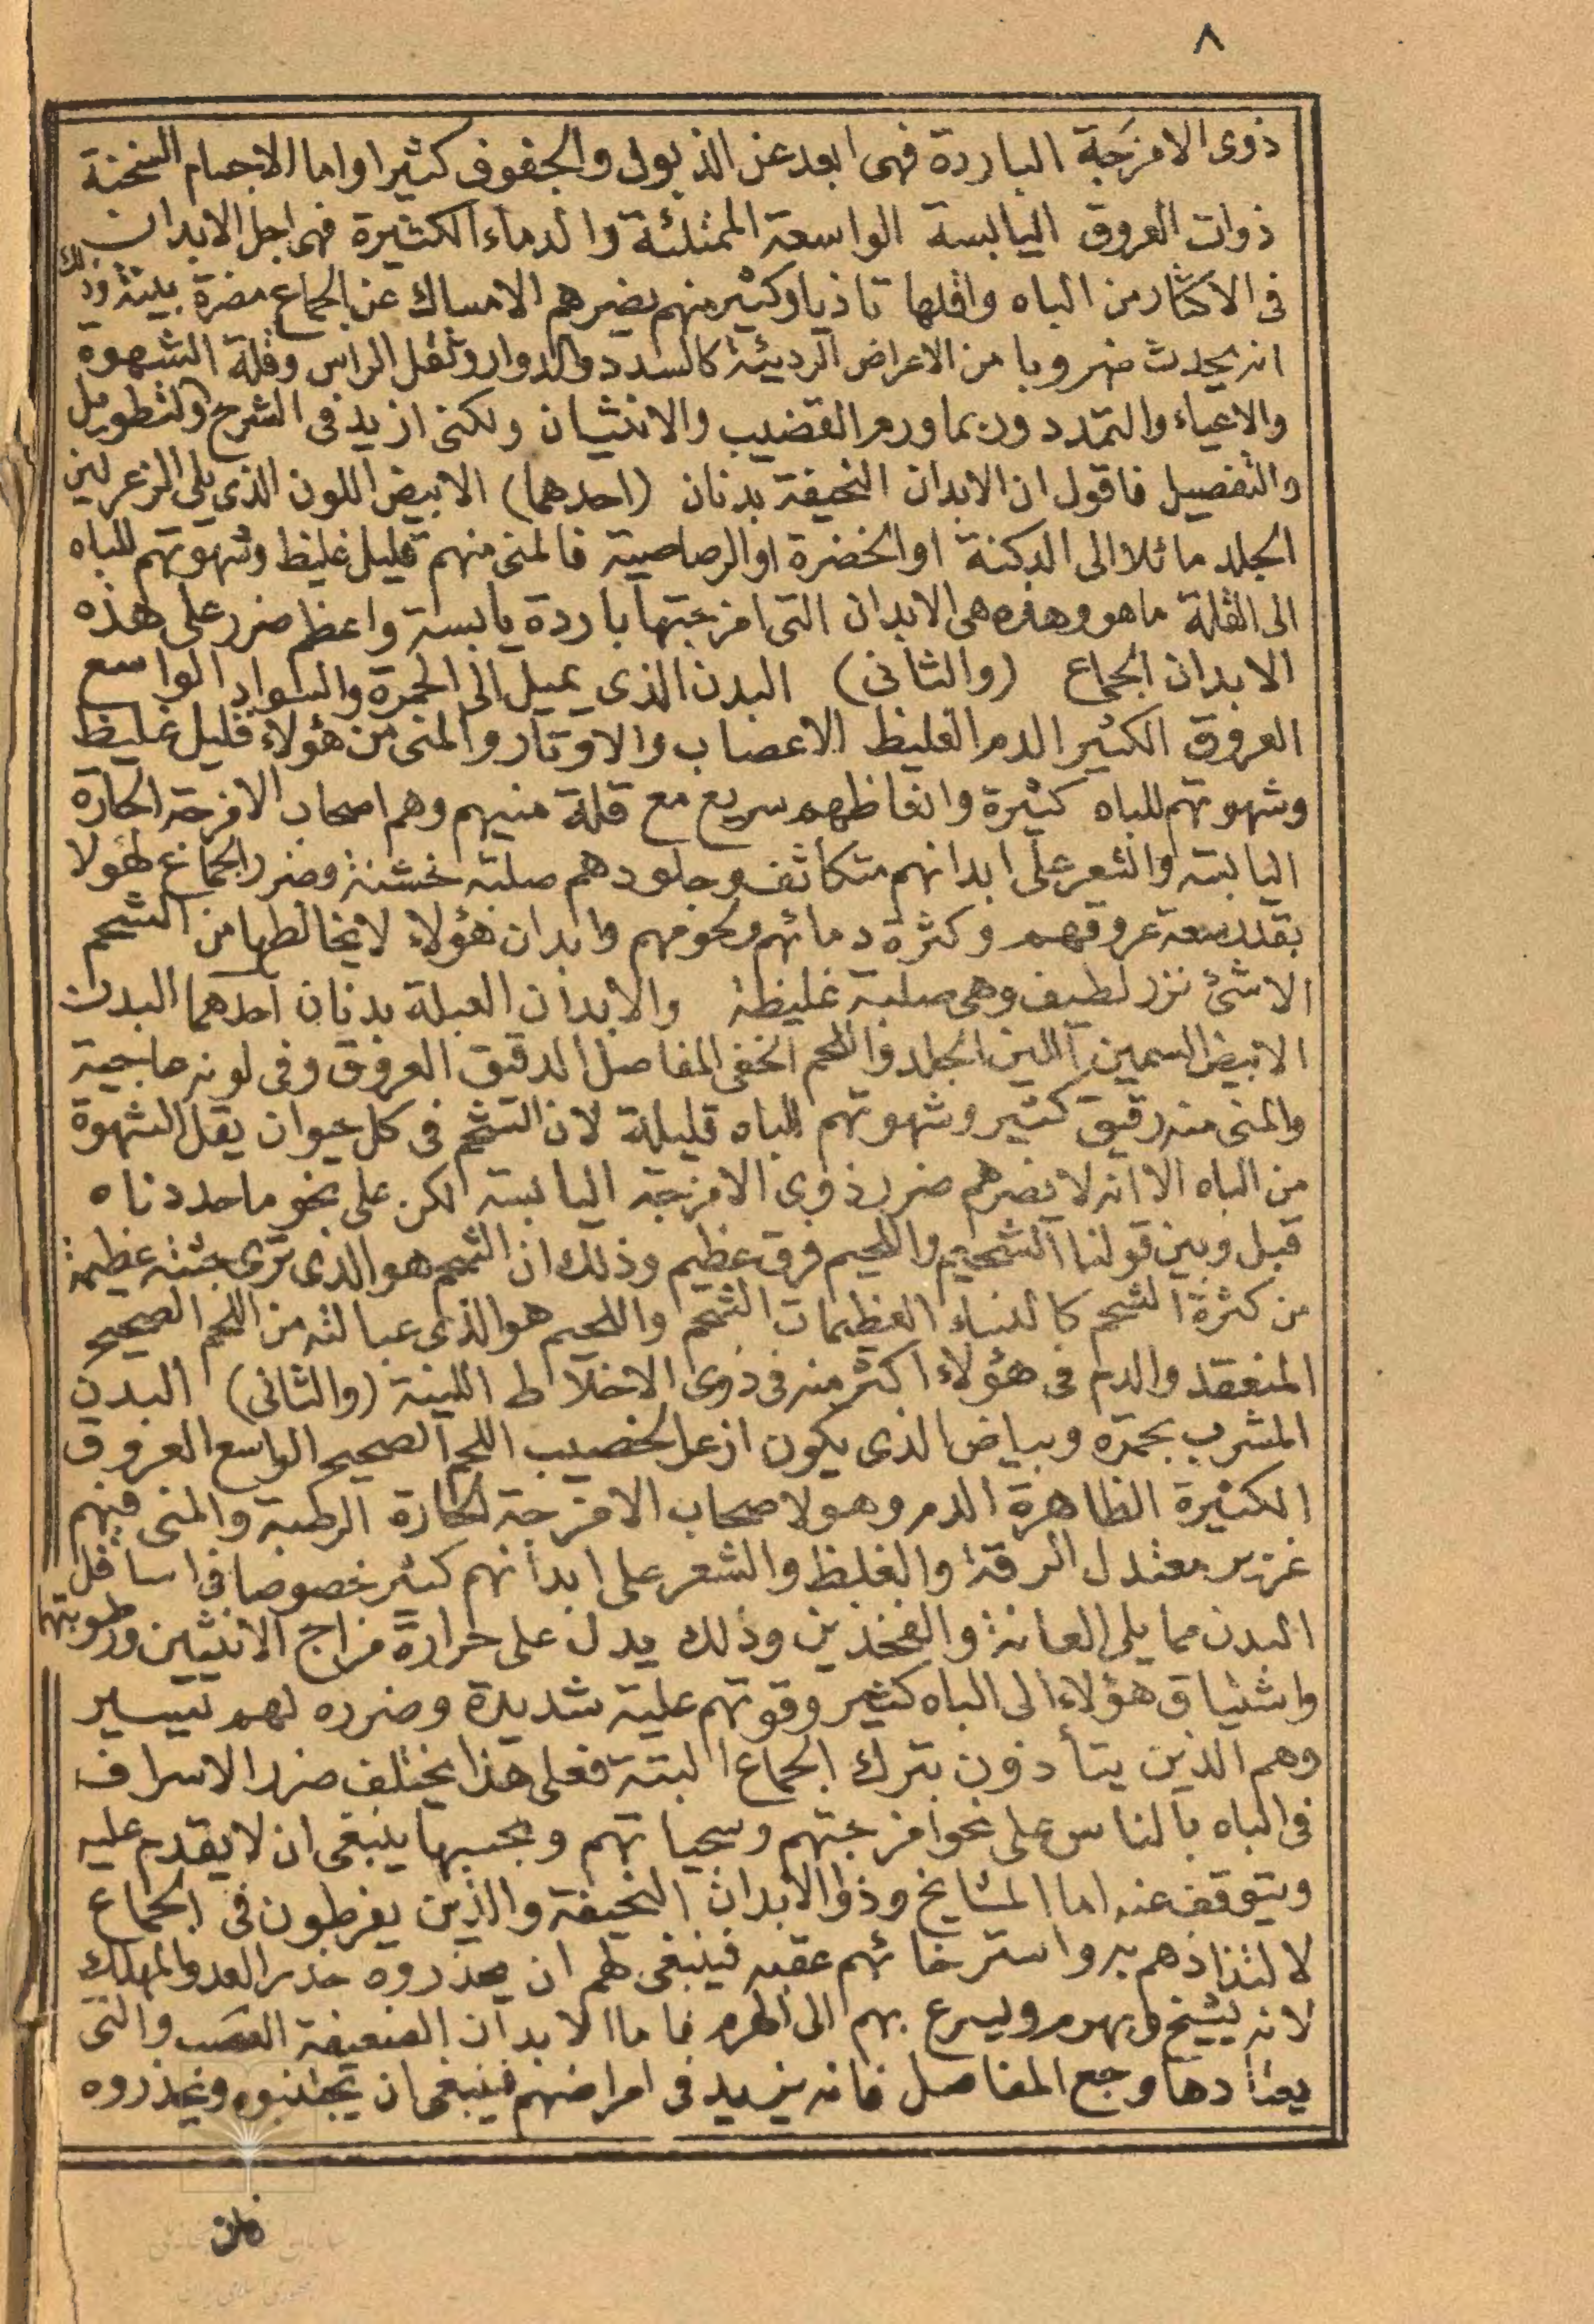 ٨
ذوى الامزجة الباردة فهى ابعد عن الذبول والجفوف كثيرا واما الاجسام السخنة
ذوات العروق اليابسة الواسعة الممتلئة والدماء الكثيرة فهى اجل الابدان
فى الاكثار من الباه واقلها تاذيا وكثير منهم يضرهم الامساك عن الجماع مضرة بينة وذلك
انه يحدث ضروبا من الاعراض الرديئة كالسدد والدوار وثقل الراس وقلة الشهوة
والاعياء والتمدد وربما ورم القضيب والانثيان ولكنى ازيد فى الشرح والتطويل
والتفصيل فاقول ان الابدان النحيفة بدنان (احدهما) الابيض اللون الذى يلى الزعر لين
الجلد مائلا الى الدكنة او الخضرة او الرصاصية فالمنى منهم قليل غليظ وشهوتهم للباه
الى القلة ماهو وهذه هى الابدان التى امزجتها باردة يابسة واعظم ضرر على هذه
الابدان الجماع (والثانى) البدن الذى يميل الى الحمرة والسواد الواسع
العروق الكثير الدم الغليظ الاعصاب والاوتار والمنى من هؤلاء قليل غليظ
وشهوتهم للباه كثيرة وانعاظهم سريع مع قلة منيهم وهم اصحاب الامزجة الحارة
اليابسة والشعر على ابدانهم متكاثف وجلودهم صلبة خشنة وضرر الجماع لهولا
بقدر سعة عروقهم وكثرة دمائهم ولحومهم وابدان هؤلاء لا يخالطها من الشحم
الا شئ نزر لطيف وهى صلبة غليظة والابدان العبلة بدنان احدهما البدن
الابيض السمين اللين الجلد واللحم الخفى المفاصل الدقيق العروق وفى لونه عاجية
والمنى منه رقيق كثير وشهوتهم للباه قليلة لان الشحم فى كل حيوان يقل الشهوة
من الباه الا انه لا يضرهم ضرر ذوى الامزجة اليابسة لكن على نحو ما حددناه
قبل وبين قولنا الشحيم واللحيم فرق عظيم وذلك ان الشحم هو الذى ترى جثته عظيمة
من كثرة الشحم كالنساء العظيمات الشحم واللحيم هو الذى عبالته من اللحم الصحيح
المنعقد والدم فى هؤلاء اكثر منه فى ذوى الاخلاط اللينة (والثانى) البدن
المشرب بحمرة وبياض الذى يكون ازعر الخصيب اللحم الصحيح الواسع العروق
الكثيرة الظاهرة الدم وهولا صحاب الامزجة الحارة الرطبة والمنى فيهم
غزير معتدل الرقة والغلظ والشعر على ابدانهم كثير خصوصا فى اسافل
البدن مما يلى العانة والفخذين وذلك يدل على حرارة مزاج الانثيين ورطوبتها
واشتياق هؤلاء الى الباه كثير وقوتهم عليه شديدة وضرره لهم يسير
وهم الذين يتأذون بترك الجماع البتة فعلى هذا يختلف ضرر الاسراف
فى الباه بالناس على نحو امزجتهم وسحياتهم وبحسبها ينبغى ان لا يقدم عليه
ويتوقف عنه اما المشايخ وذوا الابدان النحيفة والذين يفرطون فى الجماع
لالتذاذهم به واسترخائهم عقبه فينبغى لهم ان يحذروه حذر العدو المهلك
لانه يشيخ ويهرم ويسرع بهم الى الهرم فاما الابدان الضعيفة العصب والتى
يعتادها وجع المفاصل فانه يزيد فى امراضهم فينبغى ان يجتنبوه ويحذروه